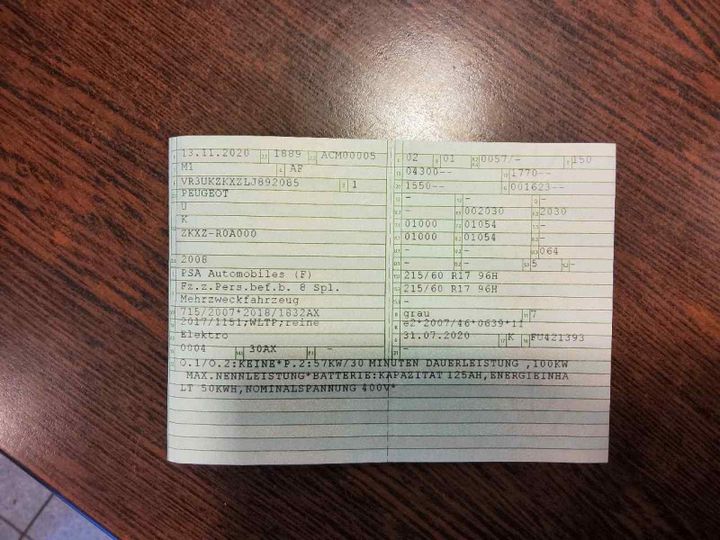 13.11.2020 1889 ACM00005
M1 AF
VR3UKZKXZLJ892085 1
PEUGEOT
U
K
ZKXZ-R0A000
2008
PSA Automobiles (F)
Fz.z.Pers.bef.b. 8 Spl.
Mehrzweckfahrzeug
715/2007*2018/1832AX
2017/1151;WLTP;reine
Elektro
0004 30AX -
02 01 0057/- 150
04300-- 1770--
1550-- 001623--
- - -
- 002030 2030
01000 01054 -
01000 01054 -
- - 064
- - -
- - 5 -
215/60 R17 96H
215/60 R17 96H
-
grau 7
e2*2007/46*0639*11
31.07.2020 K FU421393
-
O.1/O.2:KEINE*P.2:57KW/30 MINUTEN DAUERLEISTUNG ,100KW
MAX.NENNLEISTUNG*BATTERIE:KAPAZITAT 125AH,ENERGIEINHA
LT 50KWH,NOMINALSPANNUNG 400V*